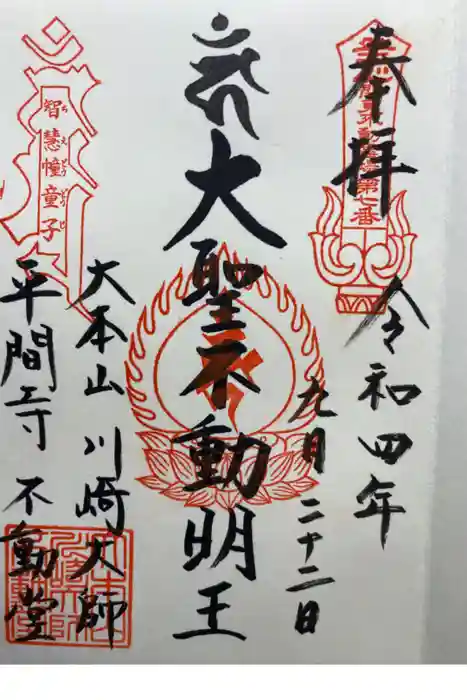 奉拝
令和四年
九月二十二日
大聖不動明王
大本山川崎大師
平間寺不動堂
智慧幢童子
ちえどうどうじ
第七番